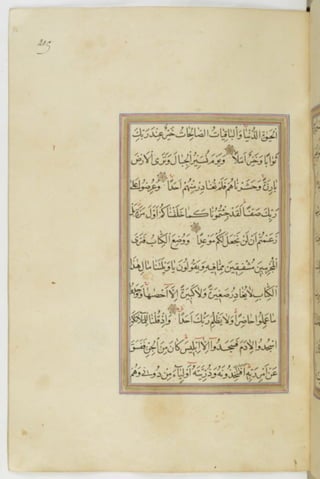 215
الحيوة الدنيا والباقيات الصالحات خير عند ربك
ثوابا وخير املا ويوم نسير الجبال وترى الارض
بارزة وحشرناهم فلم نغادر منهم احدا وعرضوا على
ربك صفا لقد جئتمونا كما خلقناكم اول مرة بل
زعمتم ان لن نجعل لكم موعدا ووضع الكتاب فترى
المجرمين مشفقين مما فيه ويقولون يا ويلتنا مال هذا
الكتاب لا يغادر صغيرة ولا كبيرة الا احصيها ووجدوا
ما عملوا حاضرا ولا يظلم ربك احدا واذ قلنا للملائكة
اسجدوا لادم فسجدوا الا ابليس كان من الجن ففسق
عن امر ربه افتتخذونه وذريته اولياء من دونى وهم